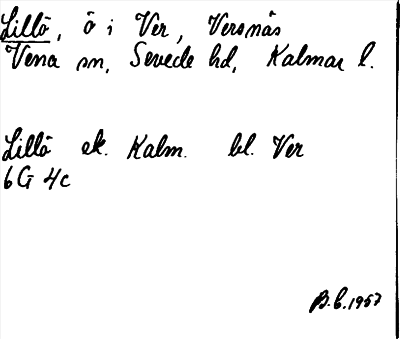 Lillö, ö i Ver, Versnäs
Vena sn, Sevede hd, Kalmar l.
Lillö ek. Kalm. bl. Ver
6G 4c
B.E. 1957